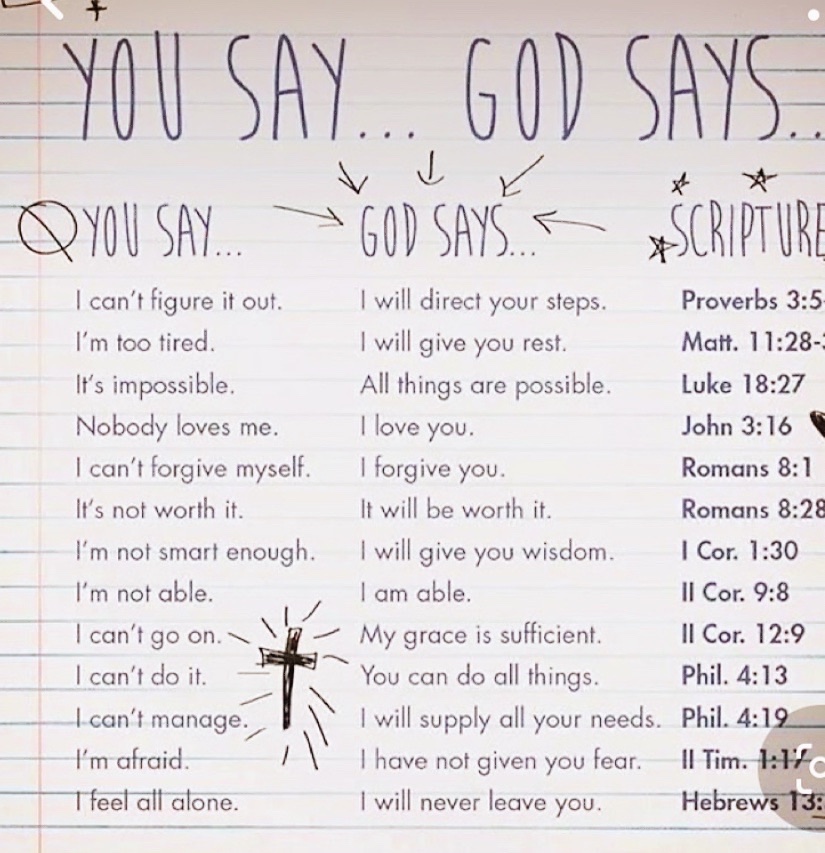 YOU SAY... GOD SAYS..
YOU SAY... GOD SAYS... SCRIPTURE
I can't figure it out. I will direct your steps. Proverbs 3:5-
I'm too tired. I will give you rest. Matt. 11:28-
It's impossible. All things are possible. Luke 18:27
Nobody loves me. I love you. John 3:16
I can't forgive myself. I forgive you. Romans 8:1
It's not worth it. It will be worth it. Romans 8:28
I'm not smart enough. I will give you wisdom. I Cor. 1:30
I'm not able. I am able. II Cor. 9:8
I can't go on. My grace is sufficient. II Cor. 12:9
I can't do it. You can do all things. Phil. 4:13
I can't manage. I will supply all your needs. Phil. 4:19
I'm afraid. I have not given you fear. II Tim. 1:17
I feel all alone. I will never leave you. Hebrews 13: